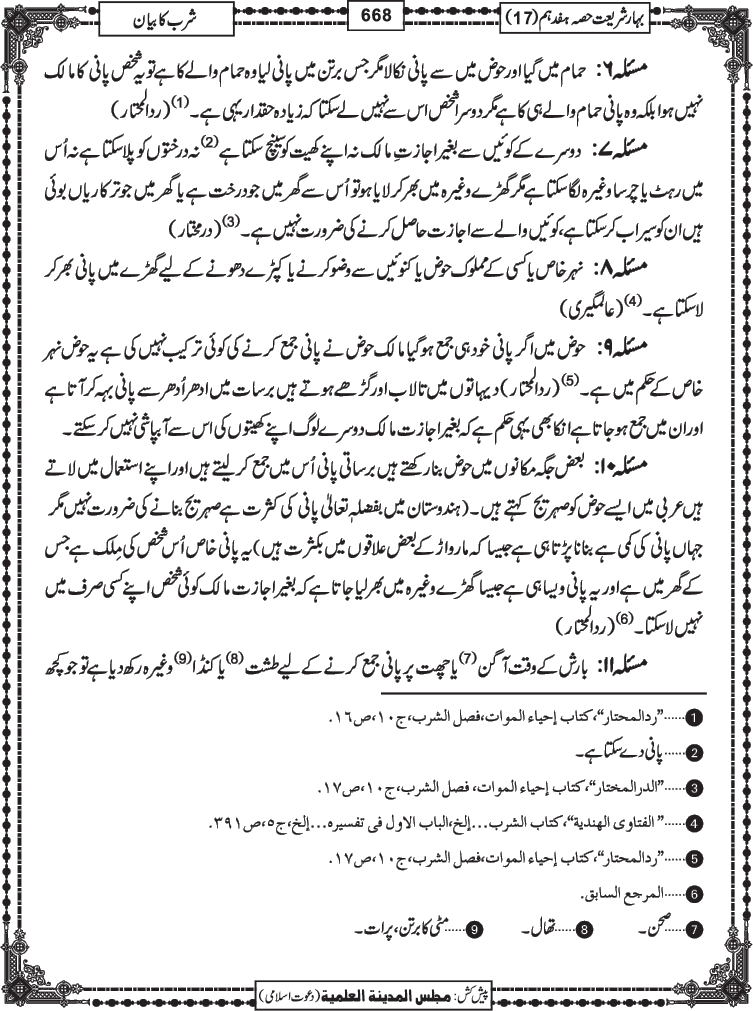 بہارِ شریعت حصہ ہفدہم (17)
668
شرب کا بیان
مسئلہ ۶: حمام میں گیا اور حوض میں سے پانی نکالا مگر جس برتن میں پانی لیا وہ حمام والے کا ہے تو یہ شخص پانی کا مالک
نہیں ہوا بلکہ وہ پانی حمام والے ہی کا ہے مگر دوسرا شخص اس سے نہیں لے سکتا کہ زیادہ حقدار یہی ہے۔(1) (ردالمحتار)
مسئلہ ۷: دوسرے کے کوئیں سے بغیر اجازتِ مالک نہ اپنے کھیت کو سینچ سکتا ہے(2) نہ درختوں کو پلا سکتا ہے نہ اُس
میں رہٹ یا چرسا وغیرہ لگا سکتا ہے مگر گھڑے وغیرہ میں بھر کر لایا ہو تو اُس سے گھر میں جو درخت ہے یا گھر میں جو ترکاریاں بوئی
ہیں ان کو سیراب کر سکتا ہے، کوئیں والے سے اجازت حاصل کرنے کی ضرورت نہیں ہے۔(3) (درمختار)
مسئلہ ۸: نہر خاص یا کسی کے مملوک حوض یا کنوئیں سے وضو کرنے یا کپڑے دھونے کے لیے گھڑے میں پانی بھر کر
لاسکتا ہے۔(4) (عالمگیری)
مسئلہ ۹: حوض میں اگر پانی خود ہی جمع ہوگیا مالک حوض نے پانی جمع کرنے کی کوئی ترکیب نہیں کی ہے یہ حوض نہر
خاص کے حکم میں ہے۔(5) (ردالمحتار) دیہاتوں میں تالاب اور گڑھے ہوتے ہیں برسات میں ادھر اُدھر سے پانی بہہ کر آتا ہے
اور ان میں جمع ہوجاتا ہے انکا بھی یہی حکم ہے کہ بغیر اجازت مالک دوسرے لوگ اپنے کھیتوں کی اس سے آبپاشی نہیں کر سکتے۔
مسئلہ ۱۰: بعض جگہ مکانوں میں حوض بنا رکھتے ہیں برساتی پانی اُس میں جمع کر لیتے ہیں اور اپنے استعمال میں لاتے
ہیں عربی میں ایسے حوض کو صہریج کہتے ہیں۔ (ہندوستان میں بفضلہٖ تعالیٰ پانی کی کثرت ہے صہریج بنانے کی ضرورت نہیں مگر
جہاں پانی کی کمی ہے بنانا پڑتا ہی ہے جیسا کہ مارواڑ کے بعض علاقوں میں بکثرت ہیں) یہ پانی خاص اُس شخص کی مِلک ہے جس
کے گھر میں ہے اور یہ پانی ویسا ہی ہے جیسا گھڑے وغیرہ میں بھر لیا جاتا ہے کہ بغیر اجازت مالک کوئی شخص اپنے کسی صرف میں
نہیں لاسکتا۔(6) (ردالمحتار)
مسئلہ ۱۱: بارش کے وقت آنگن(7) یا چھت پر پانی جمع کرنے کے لیے طشت(8) یا کنڈا(9) وغیرہ رکھ دیا ہے تو جو کچھ
1......"ردالمحتار"، کتاب إحیاء الموات، فصل الشرب، ج۱۰، ص۱۶.
2......پانی دے سکتا ہے۔
3......"الدرالمختار"، کتاب إحیاء الموات، فصل الشرب، ج۱۰، ص۱۷.
4......"الفتاوی الھندیة"، کتاب الشرب...إلخ، الباب الاول فی تفسیرہ...إلخ، ج۵، ص۳۹۱.
5......"ردالمحتار"، کتاب إحیاء الموات، فصل الشرب، ج۱۰، ص۱۷.
6......المرجع السابق.
7......صحن۔ 8......تھال۔ 9......مٹی کا برتن، پرات۔
پیش کش: مجلس المدینة العلمیة (دعوت اسلامی)